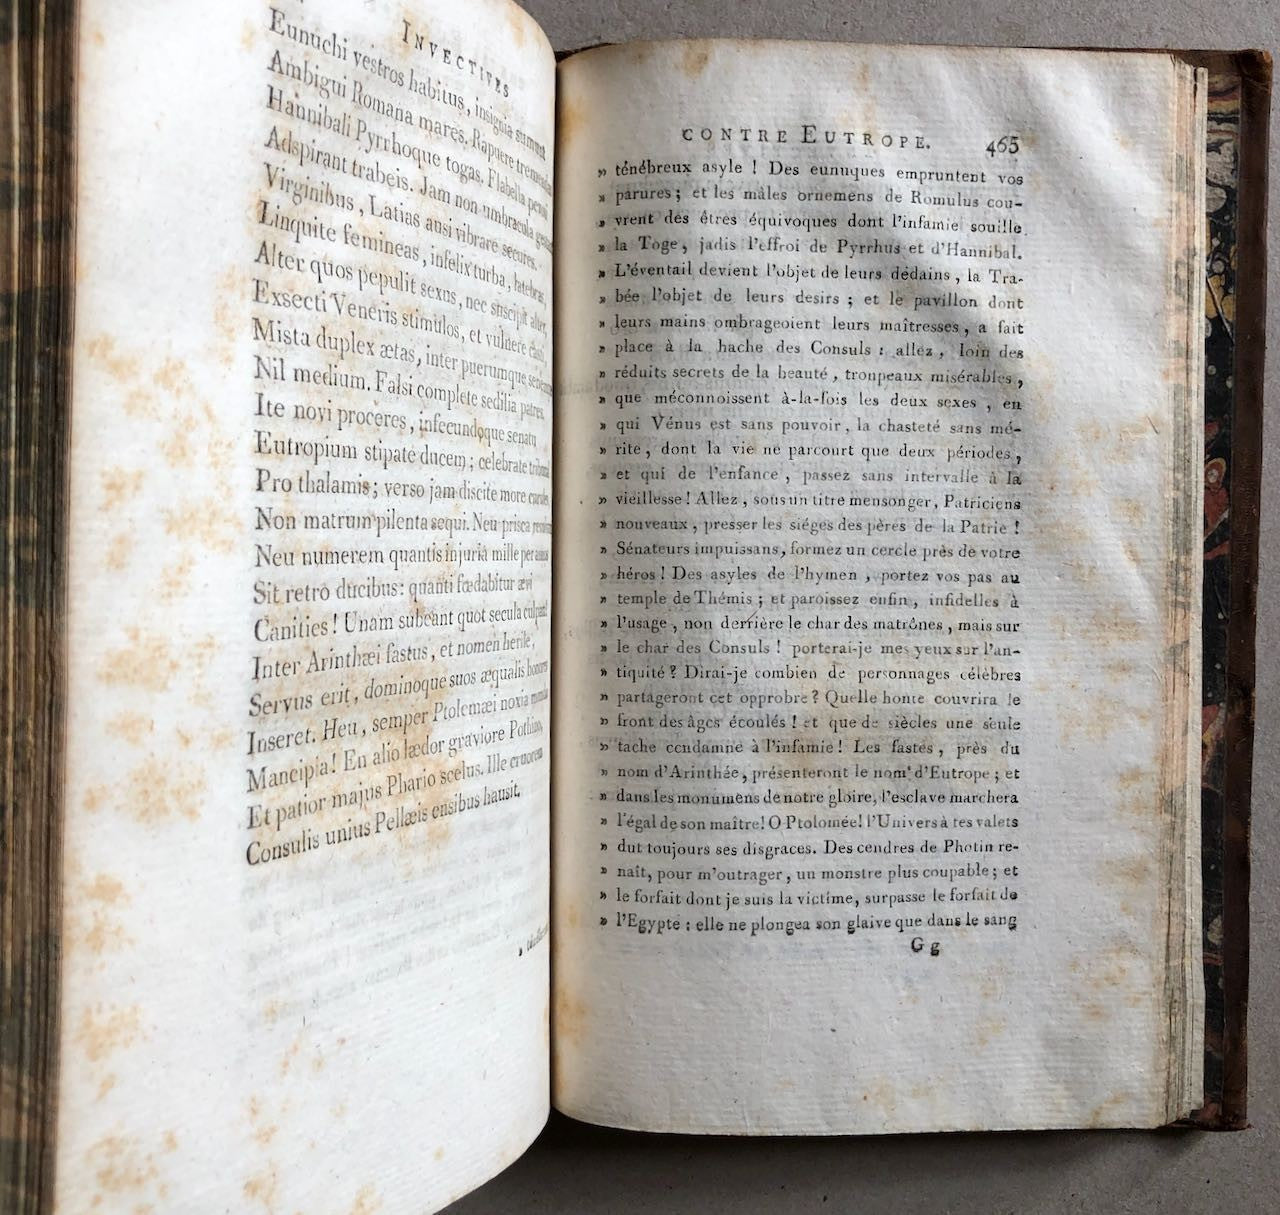 INVECTIVES
Eunuchi vestros habitus, insignia sumunt
Ambigui Romana mares. Rapuere tremendas
Hannibali Pyrrhoque togas. Flabella perosi
Adspirant trabeis. Jam non umbracula gestant
Virginibus, Latias ausi vibrare secures.
Linquite femineas, infelix turba, latebras,
Alter quos pepulit sexus, nec suscipit alter,
Exsecti Veneris stimulos, et vulnere casti,
Mista duplex ætas, inter puerumque senemque
Nil medium. Falsi complete sedilia patres.
Ite novi proceres, infecundoque senatu
Eutropium stipate ducem; celebrate tribunal
Pro thalamis; verso jam discite more curules,
Non matrum pilenta sequi. Neu prisca
Neu numerem quantis injuriâ mille per annos
Sit retro ducibus: quanti fœdabitur ævi
Canities! Unam subeant quot secula culpam!
Inter Arinthæi fastus, et nomen herile,
Servus erit, dominoque suos æqualis honores
Inseret. Heu, semper Ptolemæi noxia mundo
Mancipia! En alio lædor graviore Pothino,
Et patior majus Phario scelus. Ille cruorem
Consulis unius Pellæis ensibus hausit.
CONTRE EUTROPE. 465
» ténébreux asyle ! Des eunuques empruntent vos
» parures ; et les mâles ornemens de Romulus cou-
» vrent des êtres équivoques dont l'infamie souille
» la Toge, jadis l'effroi de Pyrrhus et d'Hannibal.
» L'éventail devient l'objet de leurs dédains, la Tra-
» bée l'objet de leurs desirs ; et le pavillon dont
» leurs mains ombrageoient leurs maîtresses, a fait
» place à la hache des Consuls : allez, loin des
» réduits secrets de la beauté, troupeaux misérables,
» que méconnoissent à-la-fois les deux sexes, en
» qui Vénus est sans pouvoir, la chasteté sans mé-
» rite, dont la vie ne parcourt que deux périodes,
» et qui de l'enfance, passez sans intervalle à la
» vieillesse ! Allez, sous un titre mensonger, Patriciens
» nouveaux, presser les siéges des pères de la Patrie !
» Sénateurs impuissans, formez un cercle près de votre
» héros ! Des asyles de l'hymen, portez vos pas au
» temple de Thémis ; et paroissez enfin, infidelles à
» l'usage, non derrière le char des matrônes, mais sur
» le char des Consuls ! porterai-je mes yeux sur l'an-
» tiquité ? Dirai-je combien de personnages célèbres
» partageront cet opprobre ? Quelle honte couvrira le
» front des âges écoulés ! et que de siècles une seule
» tache condamne à l'infamie ! Les fastes, près du
» nom d'Arinthée, présenteront le nom d'Eutrope ; et
» dans les monumens de notre gloire, l'esclave marchera
» l'égal de son maître ! O Ptolomée ! l'Univers à tes valets
» dut toujours ses disgraces. Des cendres de Photin re-
» naît, pour m'outrager, un monstre plus coupable ; et
» le forfait dont je suis la victime, surpasse le forfait de
» l'Egypte : elle ne plongea son glaive que dans le sang
G g